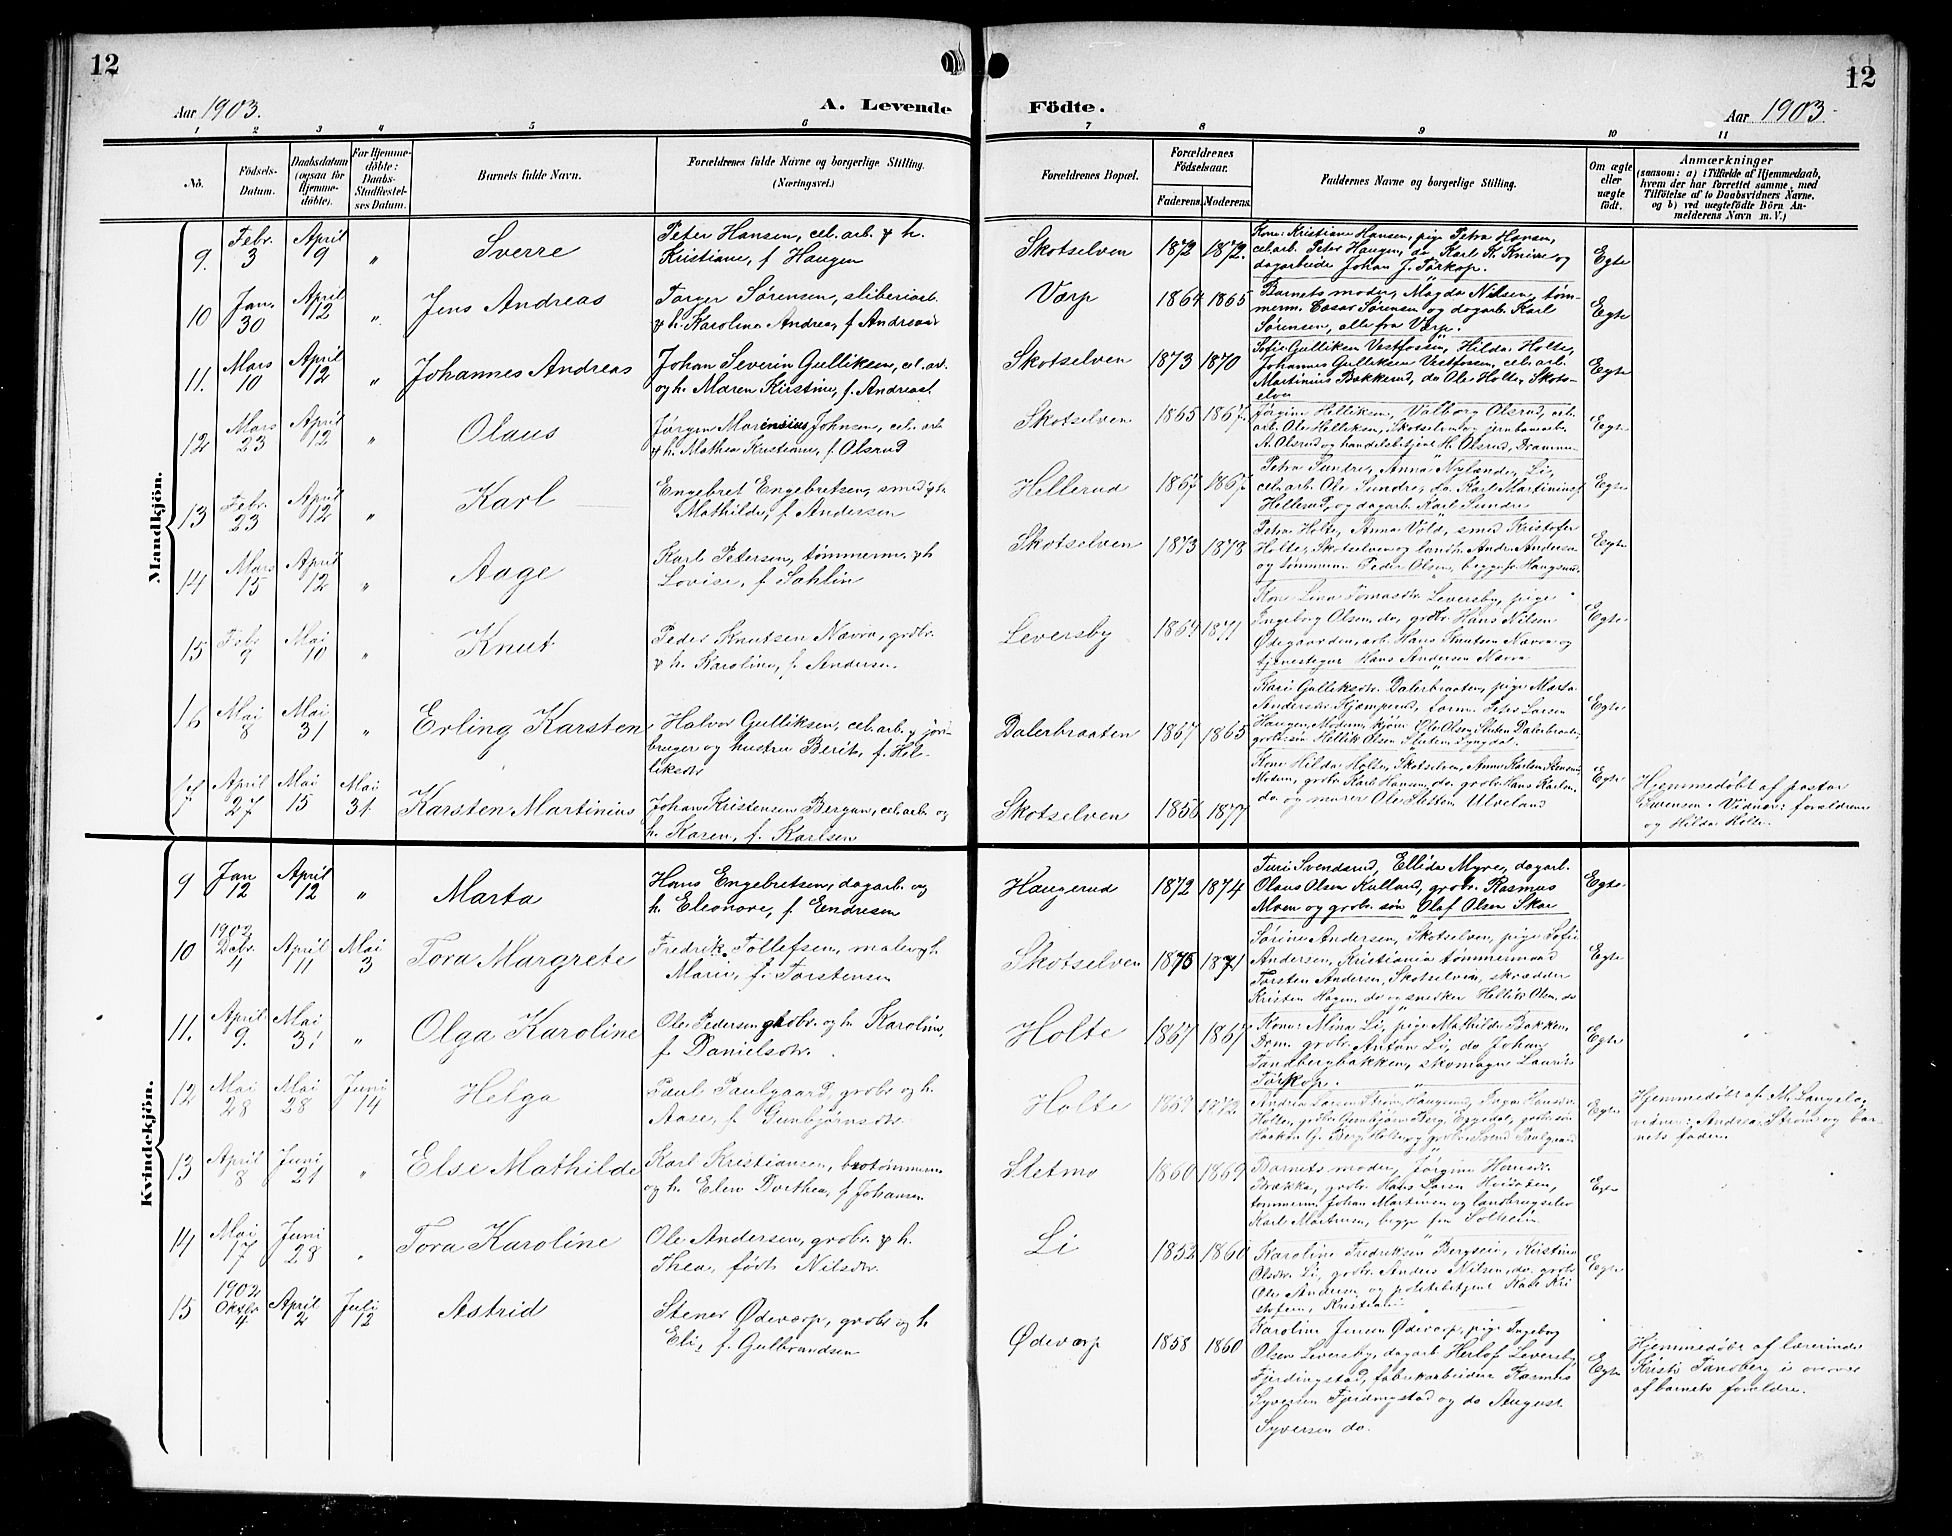 12
Aar 1903.
A. Levende
Födte.
Aar 1903.
12
1 2 3 4 5 6 7 8 9 10 11
No.
Födsels-Datum.
Daabsdatum (ogsaa for Hjemme-döbte).
For Hjemme-döbte: Daabs-Stadfæstel-ses Datum.
Barnets fulde Navn.
Forældrenes fulde Navne og borgerlige Stilling.
(Næringsvei.)
Forældrenes Bopæl.
Forældrenes Födselsaar.
Faderens. Moderens.
Faddernes Navne og borgerlige Stilling.
Om ægte eller uægte födt.
Anmærkninger
(saasom: a) i Tilfælde af Hjemmedaab,
hvem der har forrettet samme, med
Tilföielse af to Daabsvidners Navne.
og b) ved uægtefödte Börn An-
melderens Navn m. V.)
Mandkjön.
9. Febr. 3 April 9 " Sverre
Peter Hansen, cel. arb. & h.
Kristiane, f. Haugen
Skotselven 1872 1872.
Kone: Kristiane Hansen, pige Petra Hansen,
cel. arb. Peter Haugen, do Karl K. Knive og
dagarbeider Johan J. Torkop.
Egte
10 Jan. 30 April 12 " Jens Andreas
Torger Sørensen, sliberiarb.
& h. Karoline Andrea, f. Andersen
Værp 1864 1865
Barnets moder, Magda Nilsen, tøm-
merm. Cæsar Sørensen og dagarb. Karl
Sørensen, alle fra Værp.
Egte
11. Mars 10 April 12 " Johannes Andreas
Johan Severin Gulliksen, cel. ar.
og h. Maren Kirstine, f. Andreasd.
Skotselven 1873 1870
Sofie Gulliksen Vestfossen, Hilda Holte,
Johannes Gulliksen Vestfossen, cel. arb.
Martinius Bakkerud, do Ole Holte, Skots-
elven
Egte
12 Mars 23 April 12 " Olaus
Jørgen Marensius Johnsen, cel. arb
& h. Mathea Kristiane, f. Olsrud
Skotselven 1865 1867.
Jørgine Helliksen, Valborg Olsrud, arb.
arb. Ole Helliksen, Skotselven og jernbanearb.
A. Olsrud og handelsbetjent H. Olsrud, Drammen
Egte
13 Febr. 23 April 12 " Karl
Engebret Engebretsen, smed & h.
Mathilde, f. Andersen
Hellerud 1867 1867.
Petra Sundre, Anna Nylænder, Li,
cel. arb. Ole Sundre, do. Karl Martiniusen
Hellerud, og dagarb. Karl Sundre
Egte
14 Mars 15 April 12 " Aage
Karl Petersen, tømmerm. & h
Lovise, f. Sahlin
Skotselven 1873 1878
Petra Holte, Anna Vold, smed Kristofer
Holte, Skotselven og landh. Andr. Andersen
og tømmerm. Peder Olsen, begge fr. Haugsund.
Egte
15 Febr 9 Mai 10 " Knut
Peder Knutsen Nævra, grdbr.
& h. Karoline, f. Andersen.
Leversby 1864 1871
Kone Lina Tomasdtr. Leversby, pige
Ingeborg Olsen, do, grdbr. Hans Nilsen
Ødegaarden, arb. Hans Knutsen Nævra og
tjenestegut Hans Andersen Nævra.
Egte
16 Mai 8 Mai 31 " Erling Karsten
Halvor Gulliksen, cel. arb. & jor-
bruger og hustru Berit, f. Hel-
liksdtr
Dalerbraaten 1867 1865
Kari Gulliksdtr. Dalerbraaten, pige Marta
Andersdtr Hjemperud, form. Peter Larsen
Haugen, Modum, kjører Ole Olsen Sluten Dalerbraaten,
grdbr. søn Hellik Olsen Sluten Lyngdal.
Egte
17 April 27 Mai 15 Mai 31 Karsten Martinius
Johan Kristensen Bergan, cel. arb og
h. Karen, f. Karlsen
Skotselven 1856 1877
Kone Hilda Holte, Skotselven, Anna Karlsen Stensrud,
Modum, grdbr. Karl Hansen, do. grdbr. Hans Karlsen,
do. og murer Ole Sletten Ulveland
Egte
Hjemmedøbt af pastor
Sørensen. Vidner: forældrene
og Hilda Holte.
Kvindekjön.
9 Jan 12 April 12 " Marta
Hans Engebretsen, dagarb. og
h. Eleonore, f. Endresen
Haugerud 1872 1874
Turi Svendsrud, Ellida Myre, dagarb.
Olaus Olsen Kolland, grdbr. Rasmus
Moen og grdbr. søn Olaf Olsen Skar
Egte
10 1902 Decbr. 4 April 11 Mai 3 Tora Margrete
Fredrik Tollefsen, maler & h
Marie, f. Torstensen
Skotselven 1875 1871
Sørine Andersen, Skotselven, pige Sofie
Andersen, Kristiania tømmermand
Torsten Andersen, Skotselven, skrædder
Kristen Hagen, do og snedker Hellik Olsen, do
Egte
11. April 9. Mai 31 " Olga Karoline
Ole Pedersen grdbr. og h. Karoline,
f. Danielsdtr.
Holte 1867 1867
Kone: Mina Li, pige Mathilde Bakken,
Dom. grdbr. Anton Li, do Johan
Tandbergbakken, skomager Laurits
Torkop.
Egte
12 Mai 28 Mai 28 Juni 14 Helga
Paul Paulgaard, grdbr og h.
Aase, f. Gunbjørnsdtr.
Holte 1867 1872
Andrea Larsen Strøm, Haugsund, Inga Hansdtr.
Holte, Gunbjørn Berg, Eggedal, grdbr. søn
Haakon G. Berg, Holte og grdbr. Svend Paulgaard
Egte
Hjemmedøbt af M. Langeland
vidner: Andrea Strøm og bar-
nets fader.
13 April 8 Juni 21 " Else Mathilde
Karl Kristiansen, brotømmerm.
og h. Elen Dorthea, f. Johansen
Sletmo 1860 1869
Barnets moder, Jørgine Hansdtr.
Brække, grdbr. Hans Larsen Hoisæten,
tømmerm. Johan Martinsen og landbrugselev
Karl Martinsen, begge fra Solheim.
Egte
14 Mai 17 Juni 28 " Tora Karoline
Ole Andersen, grdbr. & h.
Thea, født Nilsdtr.
Li 1852 1860
Karoline Fredriksen Bergseie, Kirstine
Olsdtr. Li, grdbr. Anders Nilsen, do, grdbr.
Ole Andersen og politibetjent Karl Kri
stofersen, Kristiania.
Egte
15 1902 Oktbr 4 April 2 Juli 12 Astrid
Stener Ødeværp, grdbr og h
Eli, f. Gulbrandsen
Ødeværp 1858 1860
Karoline Jensen Ødeværp, pige Ingeborg
Olsen Leversby, dagarb Herlof Leversby,
Fjerdingstad, fabrikarbeider Rasmus
Syversen Fjerdingstad og do August
Syversen do.
Egte
Hjemmedøbt af lærerinde
Kristi Tandberg i overvær
af barnets forældre.